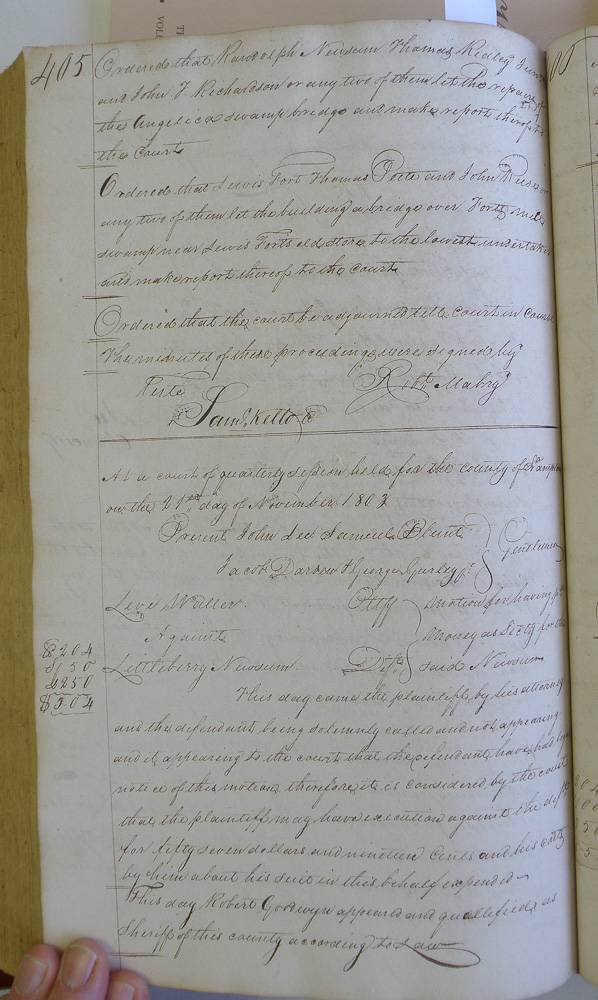 405
Ordered that Randolph Newsum Thomas Ridley Junr
and John T. Richardson or any two of them let the repairs of
the Angelica swamp bridge and make report thereof to
the Court
Ordered that Lewis Fort Thomas Pete and John Reese or
any two of them let the building a bridge over mill
swamp near Lewis Forts old store to the lowest undertaker
and make report thereof to the court
Ordered that this court be adjourned till court in course
The minutes of these proceedings were signed by
Teste Robt. Mabry
Saml. Kello
At a court of quarterly session held for the county of
on the 21st day of November 1803
Present John Lee Samuel Blunt
Gentlemen
Jacob Darden & George Gurley jr.
Levi Waller. Pltff Motion for having pd
Against Money as Secty for the
$204
1050
4250
Littleberry Newsum. Deft. said Newsum
This day came the plaintiff by his attorney
and the defendant being solemnly called and not appearing
and it appearing to the court that the defendant have had legal
notice of this motion therefore it is considered by the court
that the plaintiff may have execution against the deft
for fifty seven dollars and nineteen Cents and his costs
by him about his suit in this behalf expended
This day Robert Goodwyn appeared and quallified as
Sheriff of this county according to Law